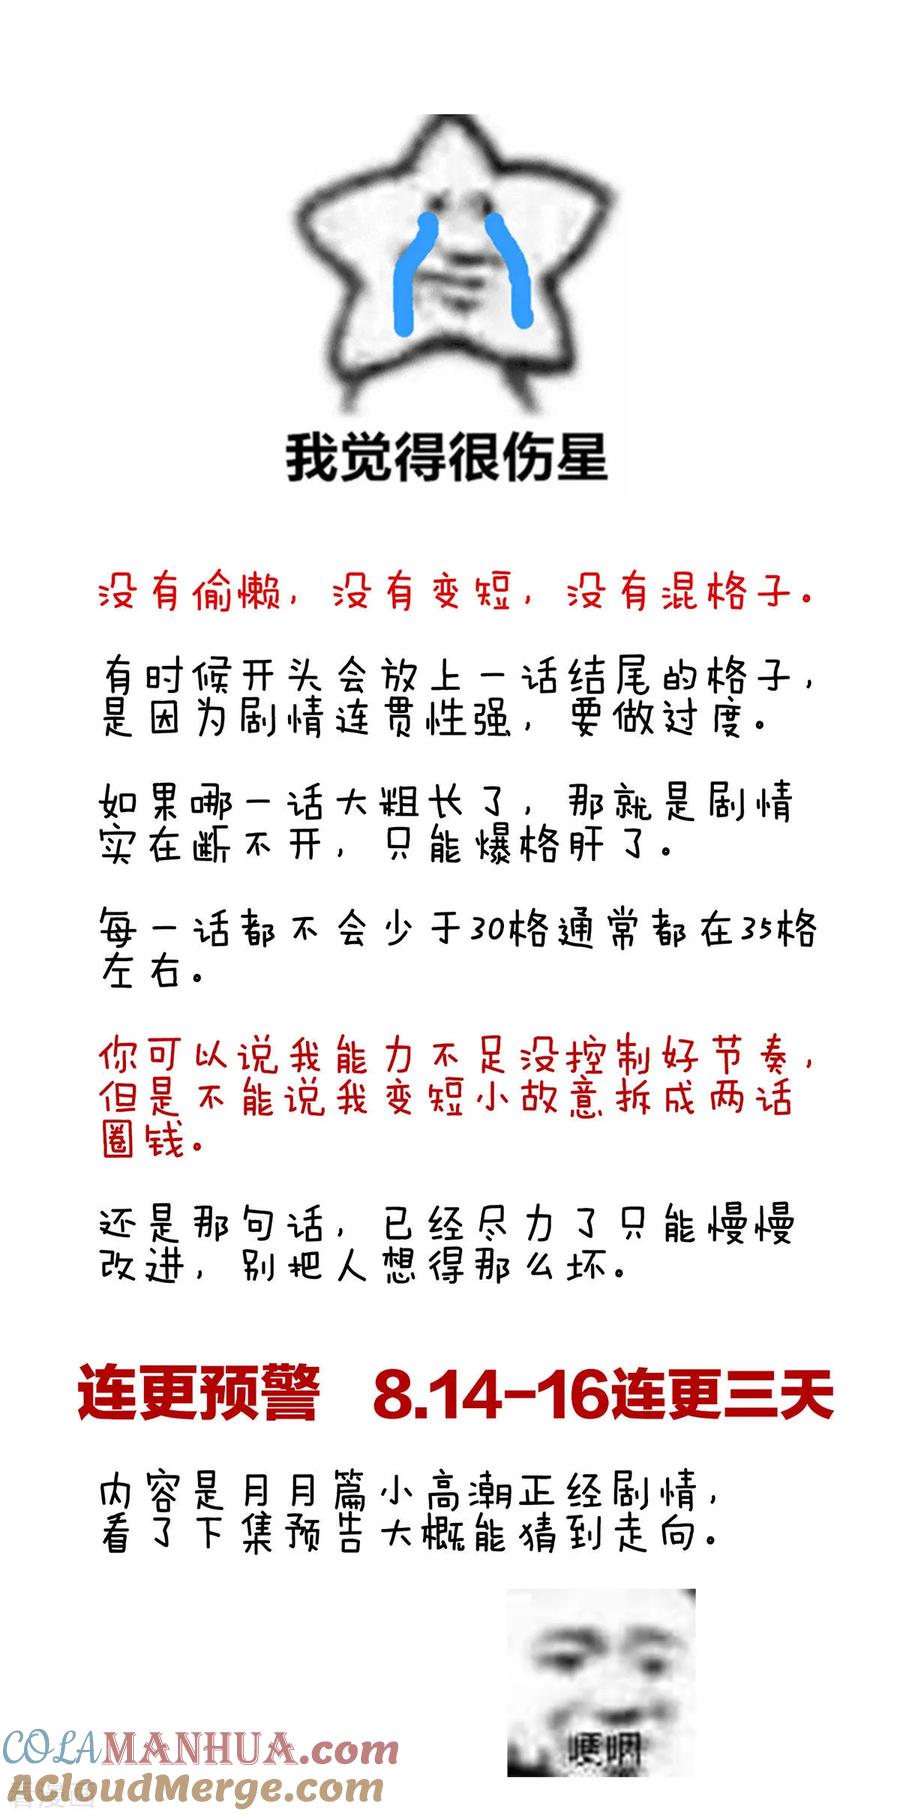 我觉得很伤星
没有偷懒，没有变短，没有混格子。
有时候开头会放上一话结尾的格子，
是因为剧情连贯性强，要做过度。
如果哪一话大粗长了，那就是剧情
实在断不开，只能爆格肝了。
每一话都不会少于30格通常都在35格
左右。
你可以说我能力不足没控制好节奏，
但是不能说我变短小故意拆成两话
圈钱。
还是那句话，已经尽力了只能慢慢
改进，别把人想得那么坏。
连更预警 8.14-16连更三天
内容是月月篇小高潮正经剧情，
看了下集预告大概能猜到走向。
哽咽
COLAMANHUA.com
ACloudMerge.com